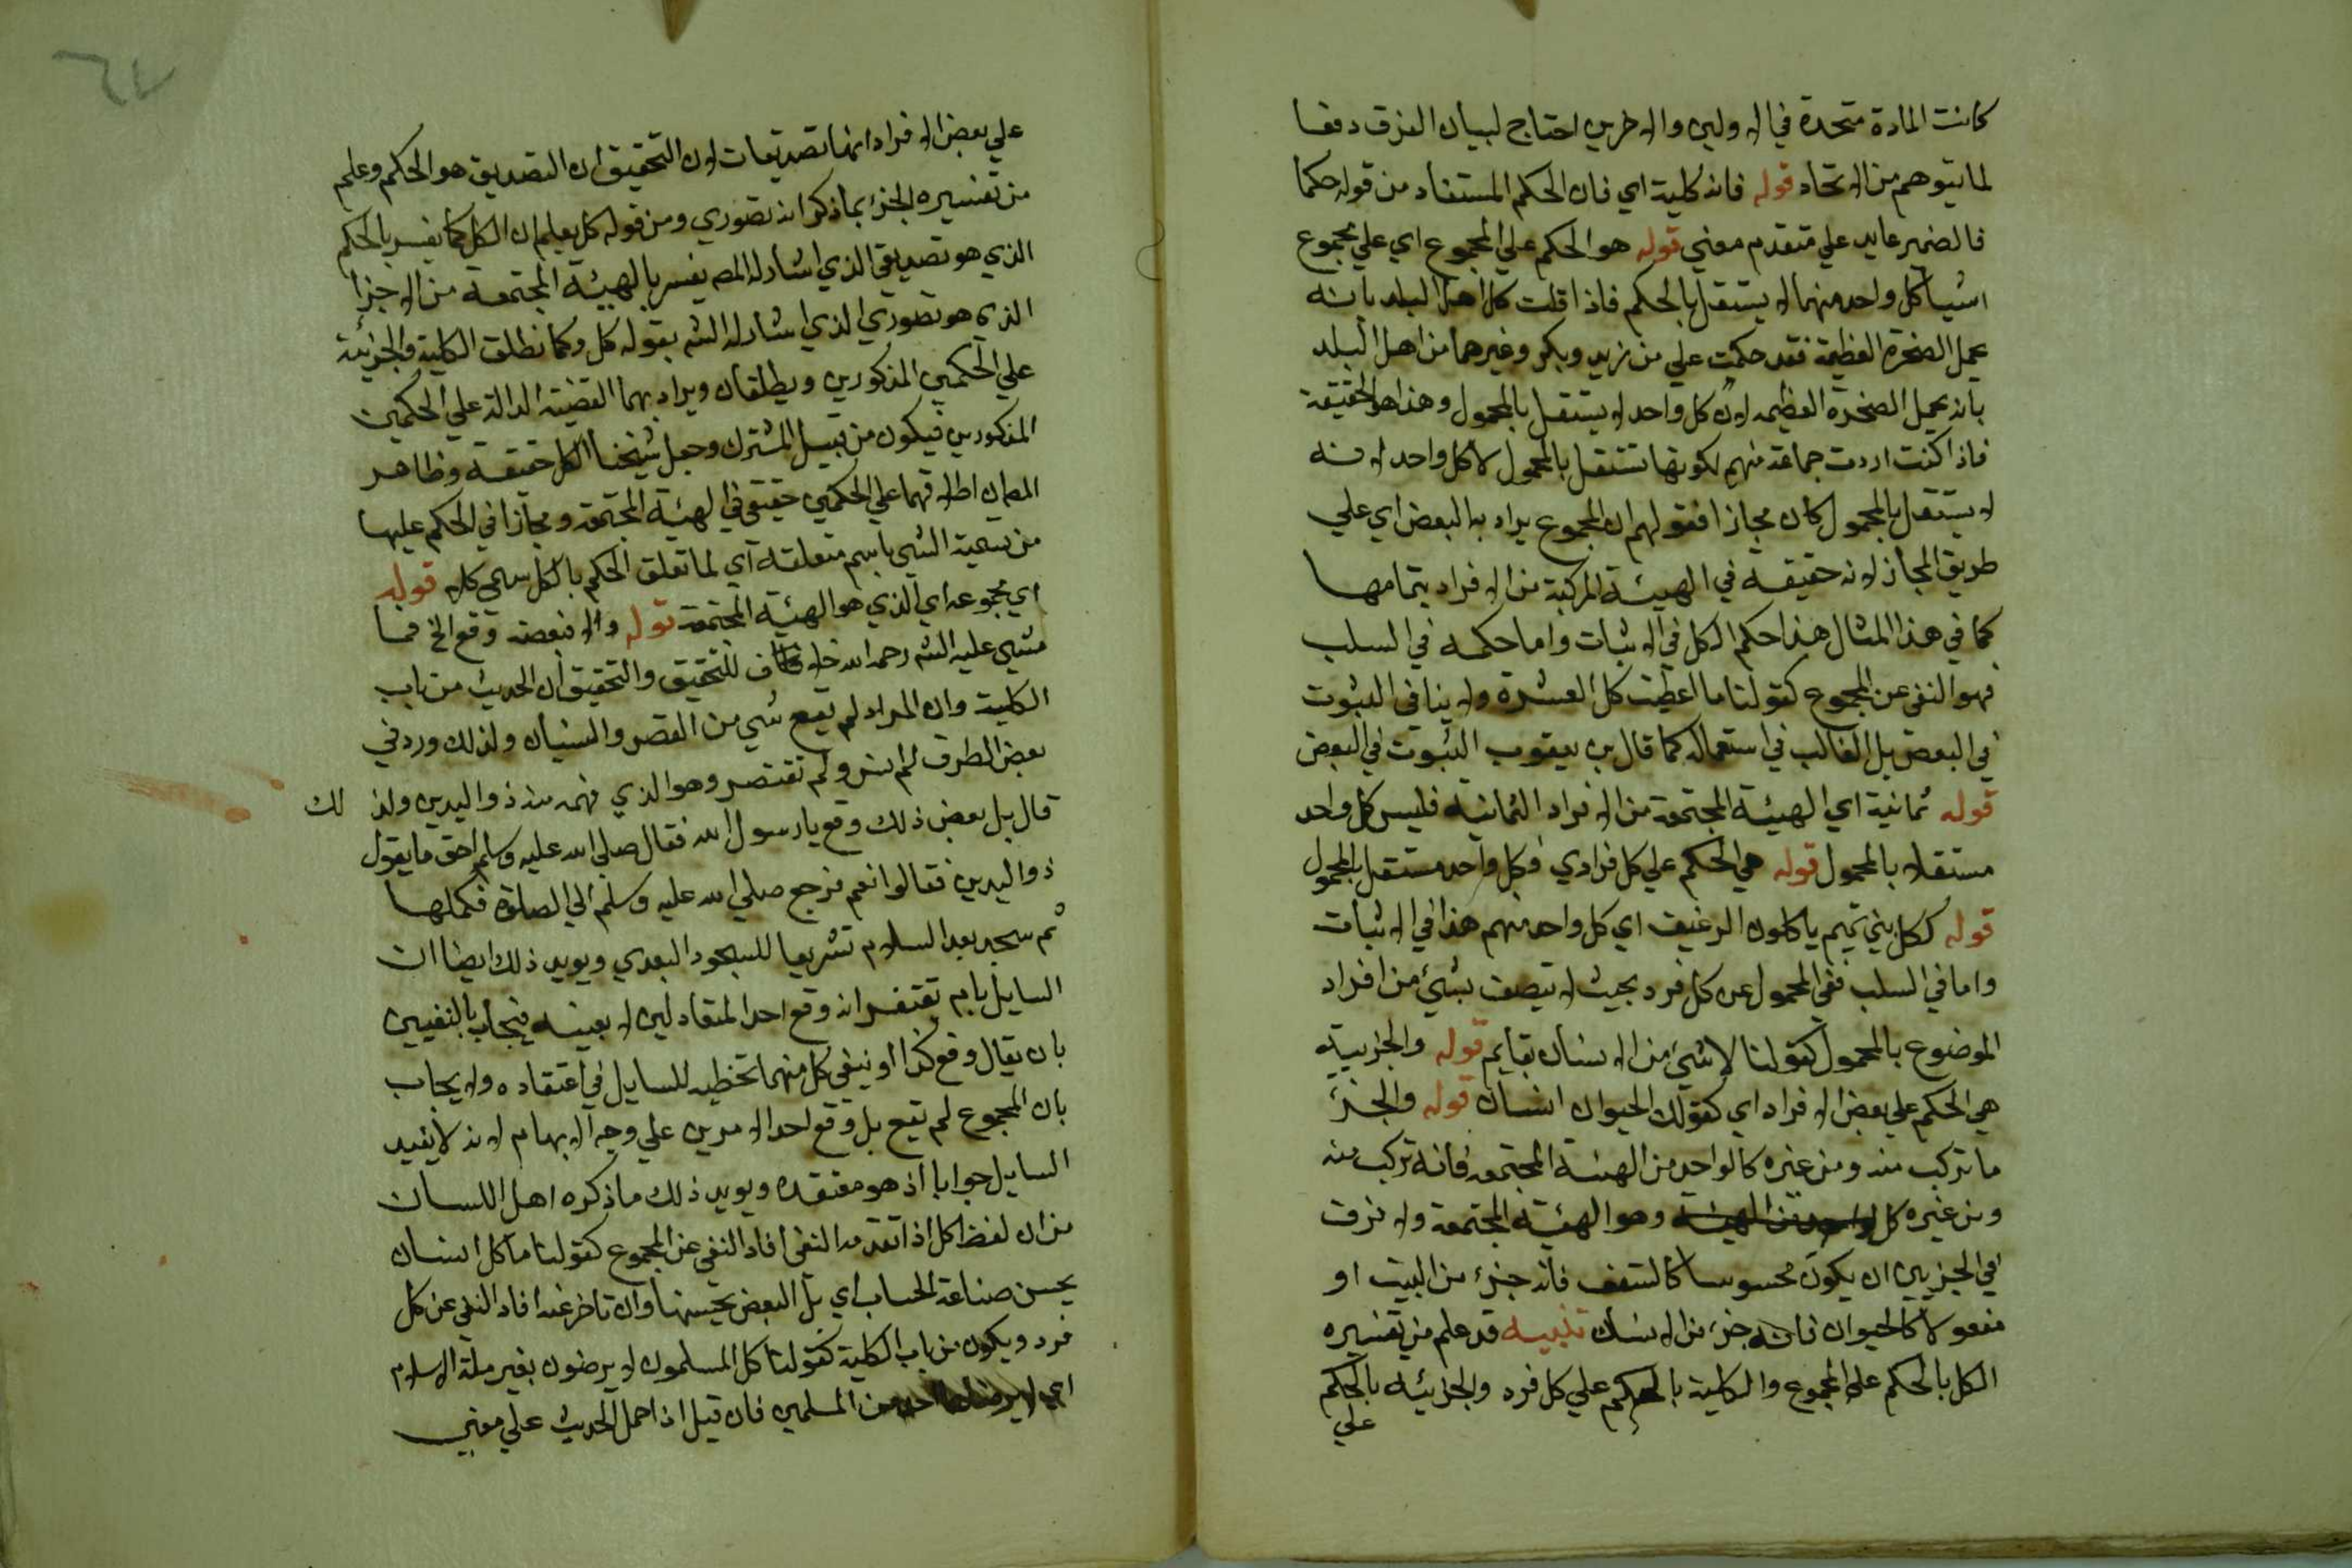 كانت المادة متحدة في الاولين والاخرين احتاج لبيان الفرق دفعا
لما يتوهم من الاتحاد قوله فانه كلية اي فان الحكم المستفاد من قوله حكما
فالضمير عايد علي متقدم معني قوله هو الحكم علي المجموع اي علي مجموع
اشيا كل واحد منهما لا يستقل بالحكم فاذا قلت كل اهل البلد بانه
يحمل الصخرة العظيمة فقد حكمت علي من زيد وبكر وغيرهما من اهل البلد
بانه يحمل الصخرة العظيمه لان كل واحد لا يستقل بالمحمول وهذا هو الحقيقة
فاذا كنت اردت جماعة منهم لكونها تستقل بالمحمول لا كل واحد لانه
لا يستقل بالمحمول كان مجازا فقولهم ان المجموع يراد به البعض اي علي
طريق المجاز لانه حقيقة في الهيئة المركبة من الافراد بتمامها
كما في هذا المثال هذا حكم الكل في الاثبات واما حكمه في السلب
فهو النفي عن المجموع كقولنا ما اعطيت كل العشرة ولا ينافي الثبوت
في البعض بل الغالب في استعماله كما قال بن يعقوب الثبوت في البعض
قوله ثمانية اي الهيئة المجتمعة من الافراد الثمانية فليس كل واحد
مستقلا بالمحمول قوله هي الحكم علي كل فرد اي وكل واحد مستقل بالمحمول
قوله ككل بني تميم ياكلون الرغيف اي كل واحد منهم هذا في الاثبات
واما في السلب فنفي المحمول عن كل فرد بحيث لا يتصف بشيئ من افراد
الموضوع بالمحمول كقولنا لا شيئ من الانسان بقايم قوله والجزيية
هي الحكم علي بعض الافراد اي كقولك الحيوان انسان قوله والجزئ
ما تركب منه ومن غيره كالواحد من الهيئة المجتمعة فانه تركب منه
ومن غيره كل وهو الهيئة المجتمعة ولا فرق
في الجزيين ان يكون محسوسا كالسقف فانه جزئ من البيت او
معقولا كالحيوان فانه جزئ من الانسان تنبيه قد علم من تفسيره
الكل بالحكم علي المجموع والكلية بالحكم علي كل فرد والجزئية بالحكم
علي
علي بعض الافراد انها تصديقات لان التحقيق ان التصديق هو الحكم وعلم
من تفسيره الجزئ بما ذكر انه تصوري ومن قوله كل يعلم ان الكل كما يفسر بالحكم
الذي هو تصديقي الذي اشار له المص يفسر بالهيئة المجتمعة من الاجزا
الذي هو تصوري الذي اشار له الش بقوله كل وكما تطلق الكلية والجزئية
علي الحكمين المذكورين ويطلقان ويراد بهما القضية الدالة علي الحكمين
المذكورين فيكون من قبيل المشترك وجعل شيخنا الكل حقيقة وظاهر
المص ان اطلاقهما علي الحكمين حقيقي في الهيئة المجتمعة ومجازا في الحكم عليها
من تسمية الشي باسم متعلقه اي لما تعلق الحكم بالكل سمي كلا قوله
اي مجموعه اي الذي هو الهيئة المجتمعة قوله والا فبعضه وقع الخ فما
مشي عليه الش رحمه الله خلاف للتحقيق والتحقيق ان الحديث من باب
الكلية وان المراد لم يقع شي من القصر والنسيان ولذلك ورد في
بعض الطرق لم انس ولم تقتصر وهو الذي فهمه منه ذو اليدين ولذ لك
قال بل بعض ذلك وقع يا رسول الله فقال صلي الله عليه وسلم احق ما يقول
ذو اليدين فقالوا نعم فرجع صلي الله عليه وسلم الي الصلاة فكملها
ثم سجد بعد السلام تشريعا للسجود البعدي ويويد ذلك ايضا ان
السايل بام يعتقد انه وقع احد المتعادلين لا بعينه فيجاب بالنفيين
بان يقال وقع كذا او ينفي كل منهما تخطية للسايل في اعتقاده ولا يجاب
بان المجموع لم يقع بل وقع احد الامرين علي وجه الابهام لانه لا يفيد
السايل جوابا اذ هو معتقده ويويد ذلك ما ذكره اهل اللسان
من ان لفظ كل اذا تقدمه النفي افاد النفي عن المجموع كقولنا ما كل انسان
يحسن صناعة الحساب اي بل البعض يحسنها وان تاخر عنه افاد النفي عن كل
فرد ويكون من باب الكلية كقولنا كل المسلمون لا يرضون بغير ملة الاسلام
اي لا يرضي احد من المسلمين فان قيل اذا حمل الحديث علي معني